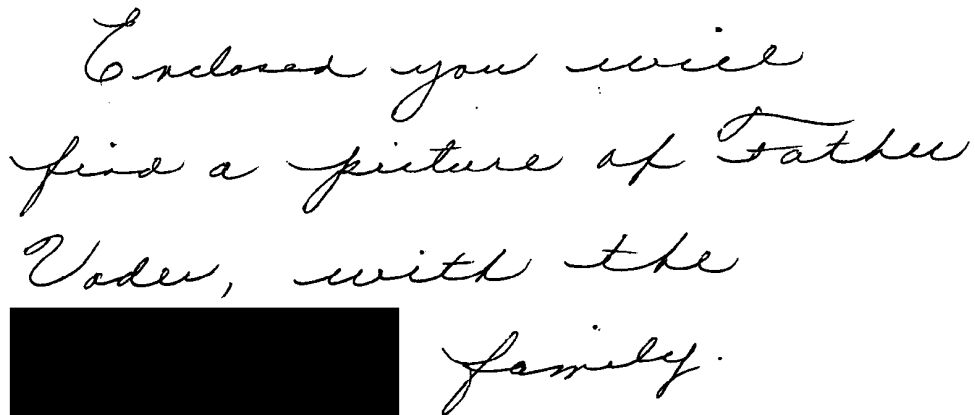 Enclosed you will
find a picture of Father
Vader, with the
family.